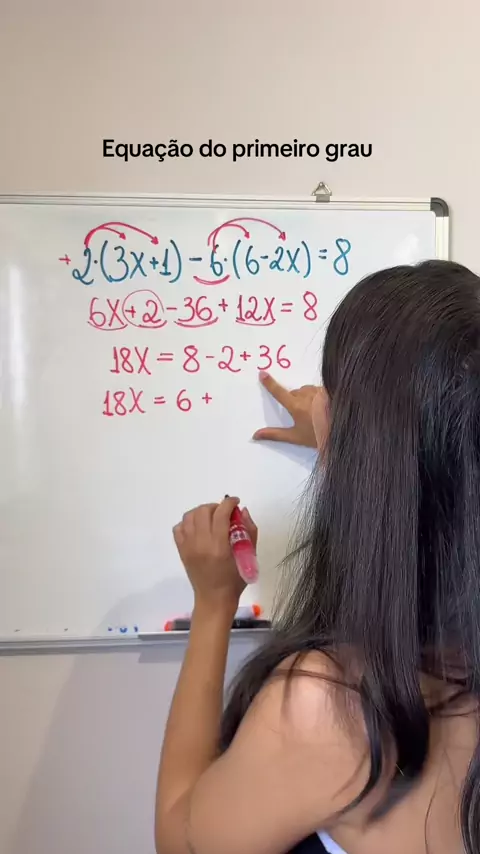 Equação do primeiro grau
+2·(3x+1)-6·(6-2x)=8
6x+2-36+12x=8
18x=8-2+36
18x=6+